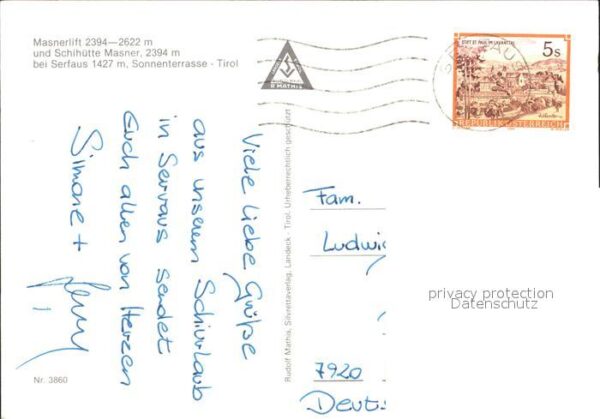 Masnerlift 2394—2622 m
und Schihütte Masner, 2394 m
bei Serfaus 1427 m, Sonnenterrasse - Tirol
R MATHIS
STIFT ST. PAUL IM LAVANTTAL
5s
REPUBLIK ÖSTERREICH
Viele liebe Grüße
aus unserem Schiurlaub
in Servaus sendet
Euch allen von Herzen
Simone +
Rudolf Mathis, Silvrettaverlag, Landeck - Tirol. Urheberrechtlich geschützt
Fam.
Ludwig
7920
Deuts
privacy protection
Datenschutz
Nr. 3860